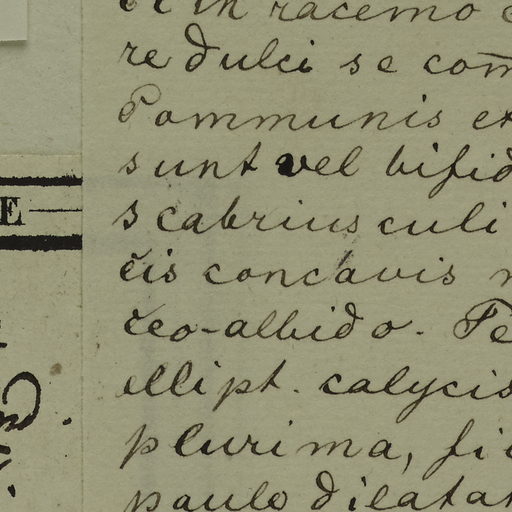 in racemo
re dulci se com̄
Communis ex
sunt vel bifid
scabrius culi
čis concavis
čeo-albido. Pe
ellipt. calycis
plurima, fi
paulo dilatat
E